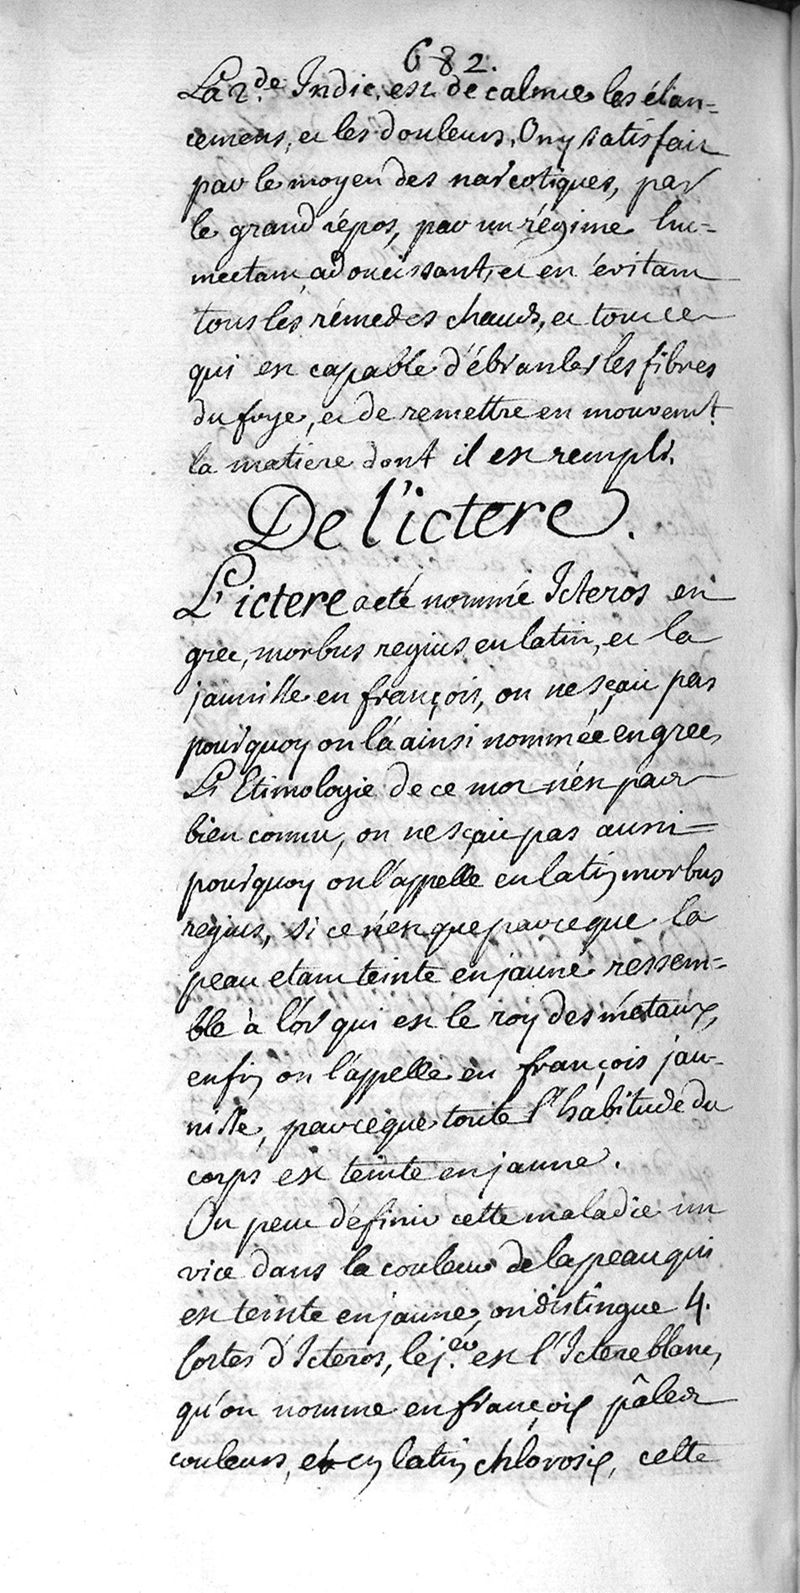 682.
La 2.de Indic. est de calmer les élan-
cemens, et les douleurs, On y satisfait
par le moyen des narcotiques, par
le grand répos, par un régime hu-
mectant, adoucissant, et en évitant
tous les rémedes chauds, et tout ce
qui est capable d'ébranler les fibres
du foye, et de remettre en mouvemt.
la matiere dont il est rempli.
De l'ictere.
L'ictere a eté nommé Icteros en
grec, morbus regius en latin, et la
jaunisse en françois, on ne sçait pas
pourquoy on l'a ainsi nommée en grec,
L'Etimologie de ce mot n'est pas
bien connu, on ne sçait pas aussi
pourquoy on l'appelle en latin morbus
regius, si ce n'est que parce que la
peau etant teinte en jaune ressem-
ble à l'or qui est le roy des métaux,
enfin on l'appelle en françois jau-
nisse, parce que toute l'habitude du
corps est teinte en jaune.
On peut définir cette maladie un
vice dans la couleur de la peau qui
est teinte en jaune, on distingue 4.
sortes d'Icteros, le j.er est l'Ictere blanc,
qu'on nomme en françois pâles
couleurs, et en latin chlorosis, cette